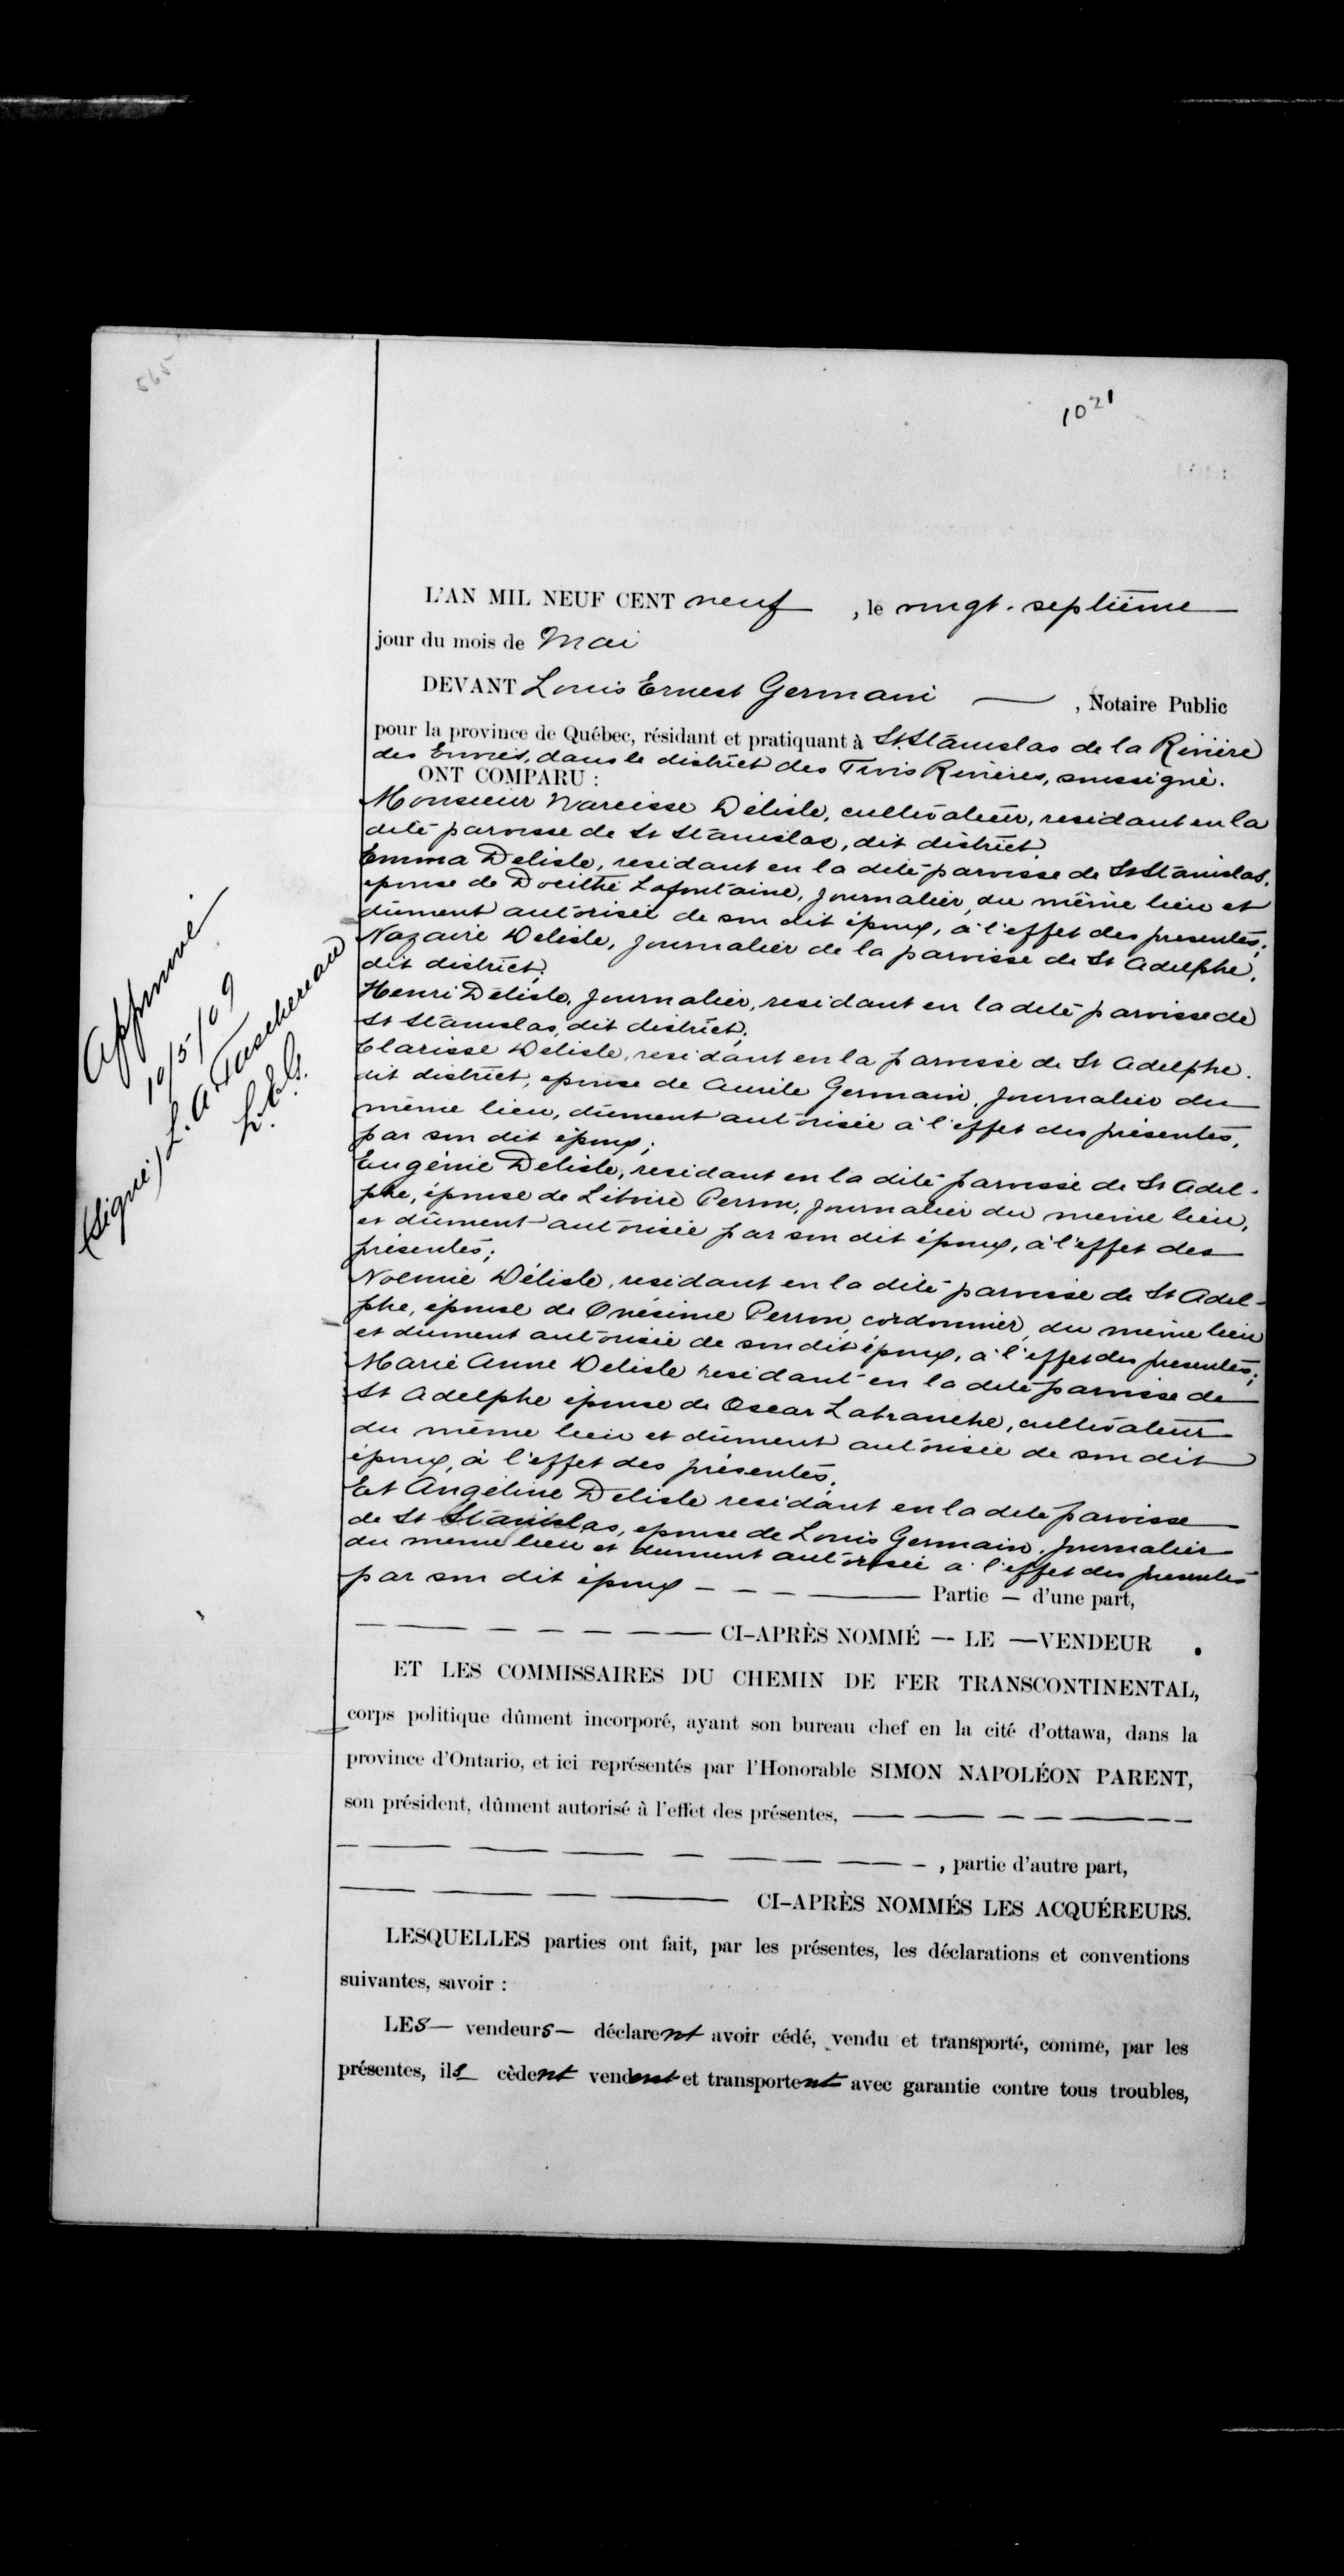 565
1021
L'AN MIL NEUF CENT neuf , le vingt-septième
jour du mois de Mai
DEVANT Louis Ernest Germain — , Notaire Public
pour la province de Québec, résidant et pratiquant à St. Stanislas de la Rivière
des Envies, dans le district des Trois Rivières, soussigné.
ONT COMPARU :
Monsieur Narcisse Délisle, cultivateur, résidant en la
dite paroisse de St Stanislas, dit district.
Emma Delisle, résidant en la dite paroisse de St Stanislas,
épouse de Docithé Lafontaine, journalier, du même lieu et
dûment autorisée de son dit époux, à l'effet des presentes;
Nazaire Delisle, journalier de la paroisse de St Adelphe,
dit district;
Henri Délisle, journalier, residant en la dite paroisse de
St Stanislas, dit district;
Clarisse Délisle, residant en la paroisse de St Adelphe.
dit district, epouse de Aurile Germain, journalier du
même lieu, dûment autorisée à l'effet des présentes,
par son dit époux;
Eugénie Delisle, residant en la dite paroisse de St Adel-
phe, épouse de Litoire Perron, journalier du meme lieu,
et dûment autorisée par son dit époux, à l'effet des
présentes;
Noemie Délisle, residant en la dite paroisse de St Adel-
phe, épouse de Onésime Perron, cordonnier, du meme lieu
et dument autorisée de son dit époux, à l'effet des presentes;
Marie Anne Delisle residant en la dite paroisse de
St Adelphe épouse de Oscar Lafranche, cultivateur
du même lieu et dûment autorisée de son dit
époux, à l'effet des présentes.
Et Angéline Delisle residant en la dite paroisse
de St Stanislas, epouse de Louis Germain, journalier
du meme lieu et dument autorisée à l'effet des presentes
par son dit époux — — — — Partie — d'une part,
— — — — — — CI-APRÈS NOMMÉ — LE — VENDEUR .
ET LES COMMISSAIRES DU CHEMIN DE FER TRANSCONTINENTAL,
corps politique dûment incorporé, ayant son bureau chef en la cité d'ottawa, dans la
province d'Ontario, et ici représentés par l'Honorable SIMON NAPOLÉON PARENT,
son président, dûment autorisé à l'effet des présentes, — — — — — —
— — — — — — — — , partie d'autre part,
— — — — CI-APRÈS NOMMÉS LES ACQUÉREURS.
LESQUELLES parties ont fait, par les présentes, les déclarations et conventions
suivantes, savoir :
LEs — vendeurs — déclarent avoir cédé, vendu et transporté, comme, par les
présentes, ils cèdent vendent et transportent avec garantie contre tous troubles,
Approuvé
10/5/09
(Signé) L. A. Taschereau